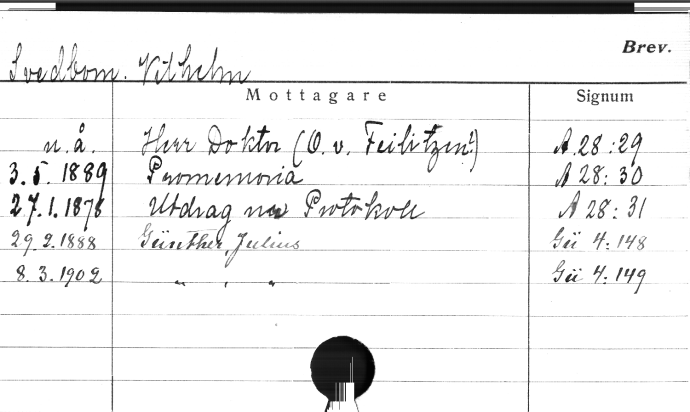 Brev.
Svedbom. Vilhelm
Mottagare Signum
n.å. Herr Doktor (O. v. Feilitzen?) A 28:29
3.5.1889 Promemoria A 28:30
27.1.1878 Utdrag ur Protokoll A 28:31
29.2.1888 Günther, Julius Gü 4:148
8.3.1902 " , " Gü 4:149